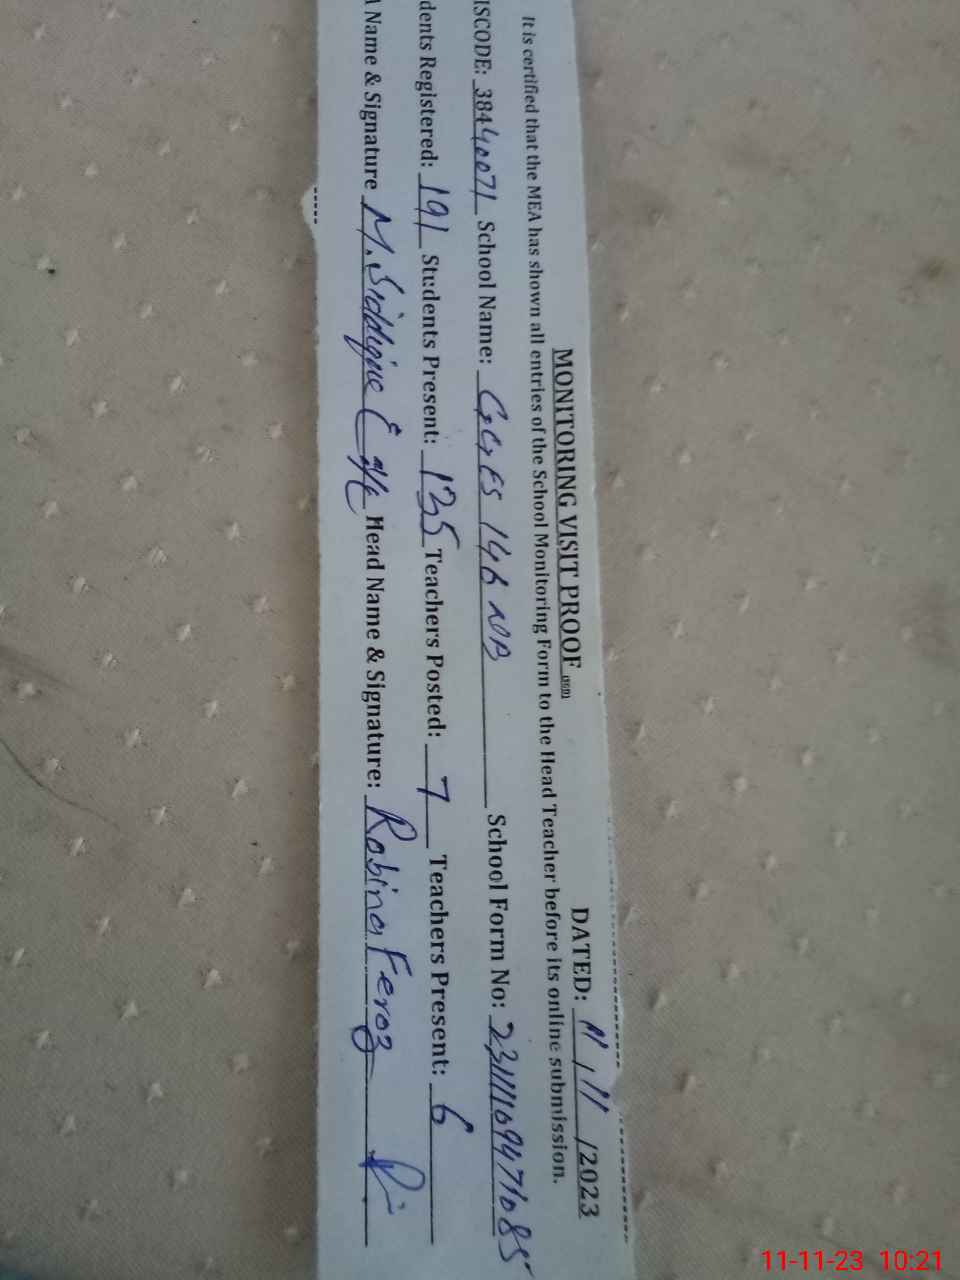 MONITORING VISIT PROOF DATED: 11/11/2023
It is certified that the MEA has shown all entries of the School Monitoring Form to the Head Teacher before its online submission.
ISCODE: 38440071 School Name: GGES 146 NB School Form No:
dents Registered: 191 Students Present: 135 Teachers Posted: 7 Teachers Present: 6
A Name & Signature M. Siddique Head Name & Signature: Robina Feroz
11-11-23 10:21